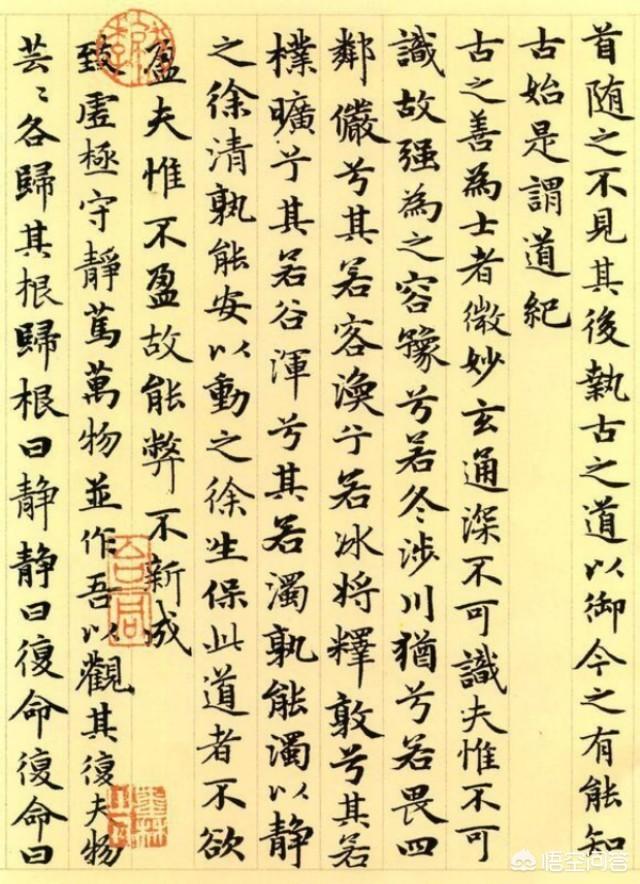 首随之不見其後執古之道以御今之有能知
古始是謂道紀
古之善為士者微妙玄通深不可識夫惟不可
識故强為之容豫兮若冬涉川猶兮若畏四
鄰儼兮其若客渙兮若冰将釋敦兮其若
樸曠兮其若谷渾兮其若濁孰能濁以靜
之徐清孰能安以動之徐生保此道者不欲
盈夫惟不盈故能弊不新成
致虛極守靜篤萬物並作吾以觀其復夫物
芸〻各歸其根歸根曰静静曰復命復命曰
悟空问答